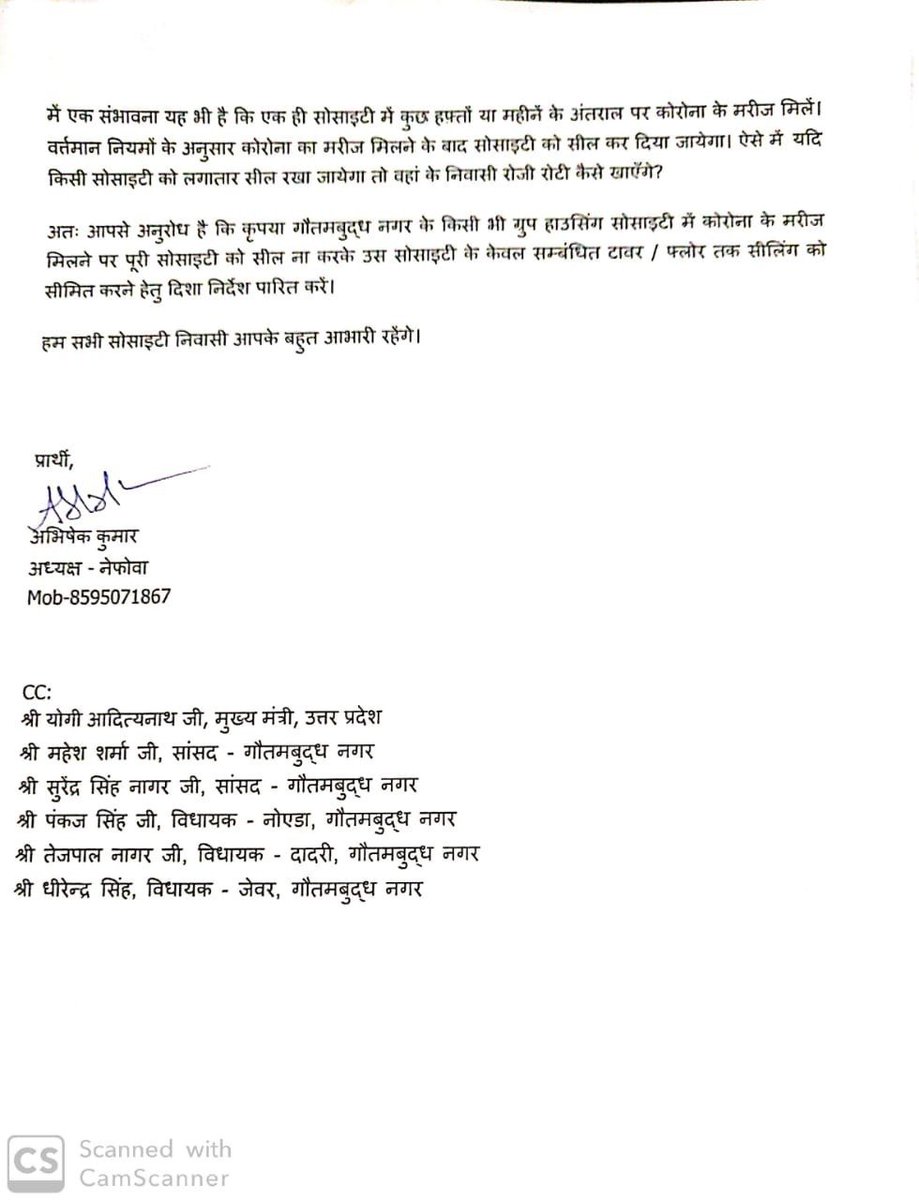 में एक संभावना यह भी है कि एक ही सोसाइटी में कुछ हफ्तों या महीनें के अंतराल पर कोरोना के मरीज मिलें।
वर्तमान नियमों के अनुसार कोरोना का मरीज मिलने के बाद सोसाइटी को सील कर दिया जायेगा। ऐसे में यदि
किसी सोसाइटी को लगातार सील रखा जायेगा तो वहां के निवासी रोजी रोटी कैसे खाएँगे?
अतः आपसे अनुरोध है कि कृपया गौतमबुद्ध नगर के किसी भी ग्रुप हाउसिंग सोसाइटी में कोरोना के मरीज
मिलने पर पूरी सोसाइटी को सील ना करके उस सोसाइटी के केवल सम्बंधित टावर / फ्लोर तक सीलिंग को
सीमित करने हेतु दिशा निर्देश पारित करें।
हम सभी सोसाइटी निवासी आपके बहुत आभारी रहेंगे।
प्रार्थी,
अभिषेक कुमार
अध्यक्ष - नेफोवा
Mob-8595071867
CC:
श्री योगी आदित्यनाथ जी, मुख्य मंत्री, उत्तर प्रदेश
श्री महेश शर्मा जी, सांसद - गौतमबुद्ध नगर
श्री सुरेंद्र सिंह नागर जी, सांसद - गौतमबुद्ध नगर
श्री पंकज सिंह जी, विधायक - नोएडा, गौतमबुद्ध नगर
श्री तेजपाल नागर जी, विधायक - दादरी, गौतमबुद्ध नगर
श्री धीरेन्द्र सिंह, विधायक - जेवर, गौतमबुद्ध नगर
CS Scanned with
CamScanner